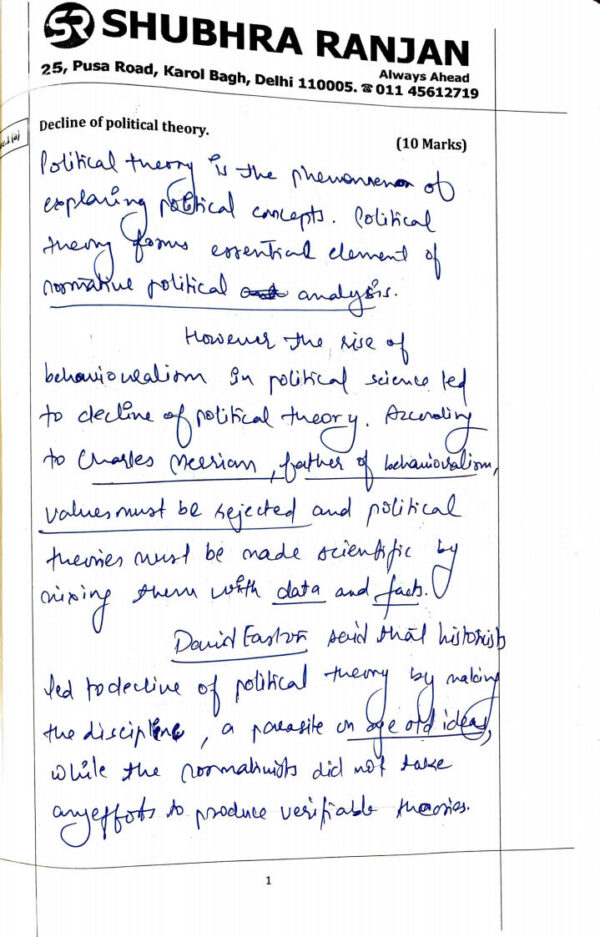 SR SHUBHRA RANJAN
Always Ahead
25, Pusa Road, Karol Bagh, Delhi 110005. ☎ 011 45612719
Decline of political theory.
(10 Marks)
Political theory is the phenomenon of
explaring political concepts. Political
theory forms essential element of
normative political analysis.
However the rise of
behaviouralism in political science led
to decline of political theory. According
to Charles Meeriam, father of behaviouralism,
values must be rejected and political
theories must be made scientific by
mixing them with data and facts.
David Easton said that historists
led to decline of political theory by making
the discipline, a parasite on age old ideas,
while the normativists did not take
any efforts to produce verifiable theories.
1